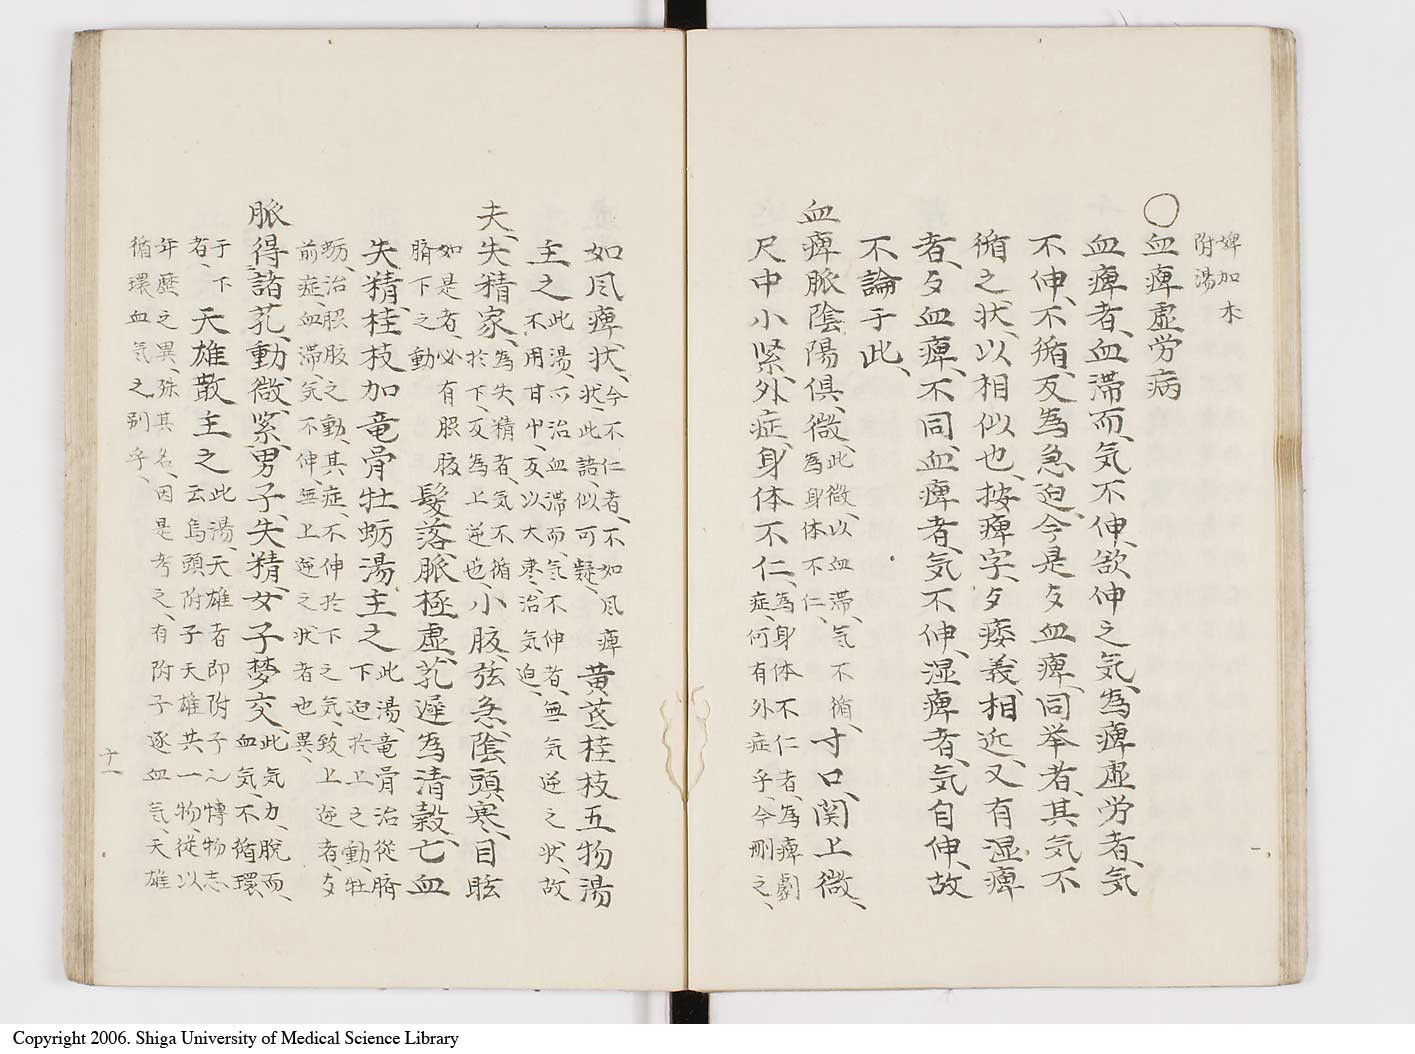 婢加朮
附湯
〇血痺虚労病
血痺者、血滞而、気不伸、欲伸之気、為痺虚労者、気
不伸、不循、反為急迫、今是夕血痺、同挙者、其気不
循之状、以相似也、按痺字、夕痿義、相近、又有湿痺
者、夕血痺、不同、血痺者、気不伸、湿痺者、気自伸、故
不論于此、
血痺脈陰陽倶、微、此微、以血滞、気不循、寸口、関上微、
為身体不仁、
尺中小緊、外症、身体不仁、為身体不仁者、為痺劇
症、何有外症乎、今刪之、
如风痺、状、今不仁者、不如风痺
状、此語、似可疑、黄芪桂枝五物湯
主之此湯、以治血滞而、気不伸者、無気逆之状、故
不用甘中、反以大棗、治気迫、
夫、失精家、為失、精者、気不循
於下、反為上逆也、小腹、弦急、陰頭、寒、目眩
如是者、必有照腹
臍下之動髪落、脈極虚、芤遅為清穀、亡血
失精、桂枝加竜骨牡蛎湯主之此湯、竜骨治従臍
下迫於上之動、牡
蛎、治照腹之動、其症、不伸於下之気、致上逆者、夕
前症、血滞、気不伸、無上逆之状者也異、
脈得諸芤、動、微、緊、男子、失精、女子夢交、此気力、脱而、
血気、不循環、
于下
者、天雄散主之此湯、天雄者即附子也博物志、
云烏頭附子天雄共一物、従以
年歴之異、殊其名、因是考之、有附子逐血気、天雄
循環血気之别乎、
十一
Copyright 2006. Shiga University of Medical Science Library